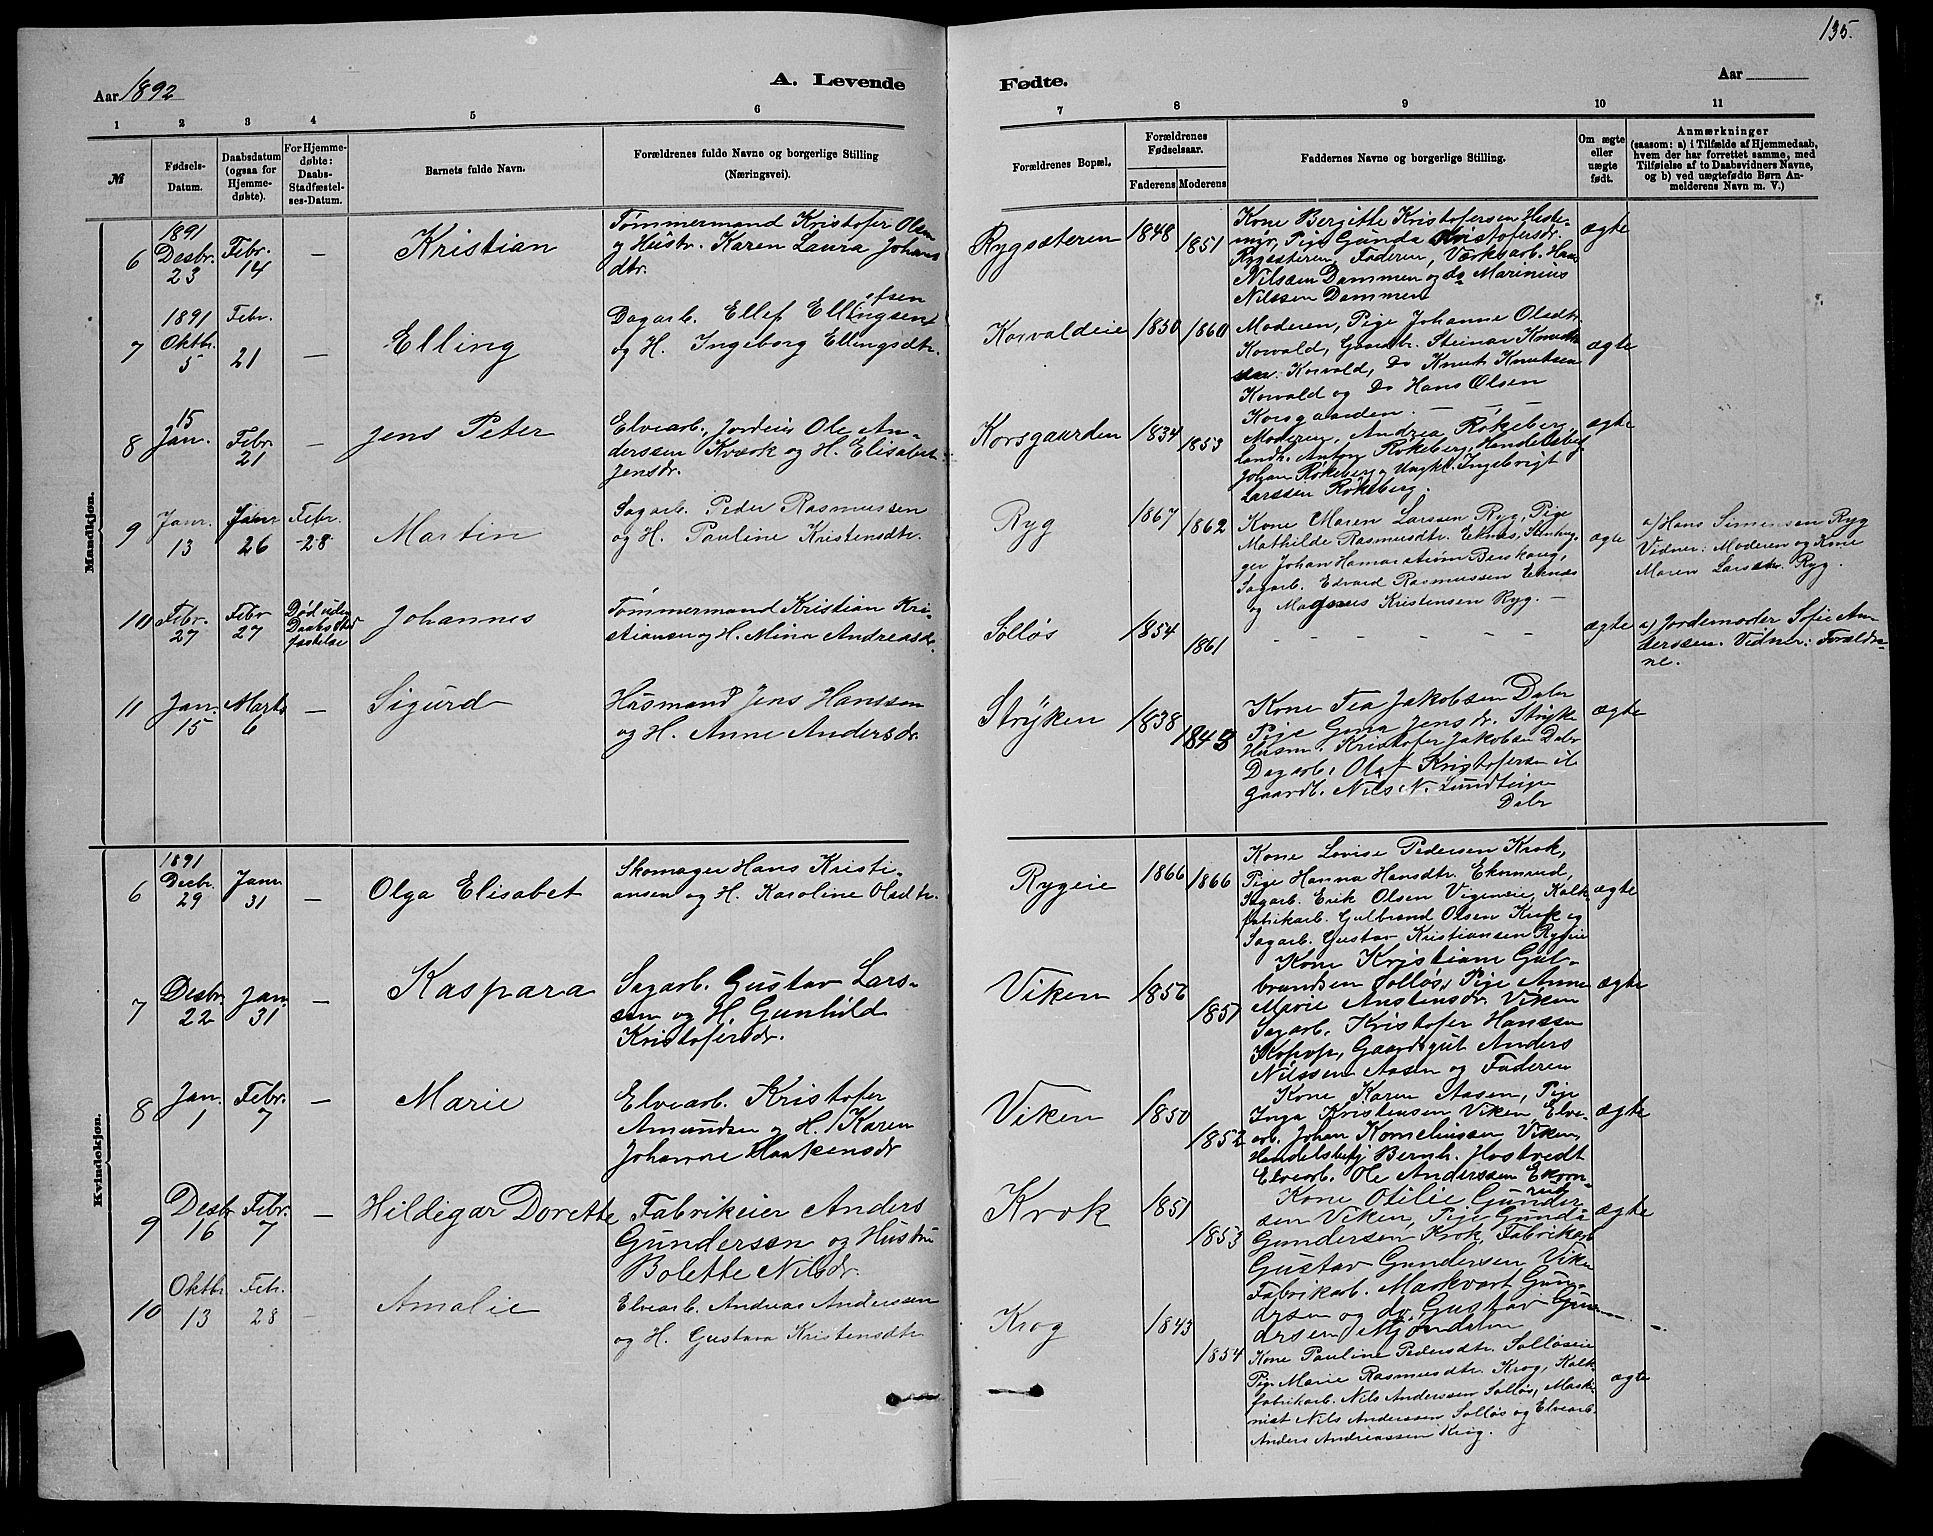 135.
Aar 1892
A. Levende
Fødte.
Aar
1 2 3 4 5 6 7 8 9 10 11
№
Fødsels-
Datum.
Daabsdatum
(ogsaa for
Hjemme-
døbte).
For Hjemme-
døbte:
Daabs-
Stadfæstel-
ses-Datum.
Barnets fulde Navn.
Forældrenes fulde Navne og borgerlige Stilling
(Næringsvei).
Forældrenes Bopæl.
Forældrenes
Fødselsaar.
Faderens Moderens
Faddernes Navne og borgerlige Stilling.
Om ægte
eller
uægte
født.
Anmærkninger
(saasom: a) i Tilfælde af Hjemmedaab,
hvem der har forrettet samme, med
Tilføielse af to Daabsvidners Navne,
og b) ved uægtefødte Børn An-
melderens Navn m. V.)
Mandkjøn.
6
1891
Desbr.
23
Febr.
14
–
Kristian
Tømmermand Kristofer Olsen
og Hustr. Karen Laura Johans
dtr.
Rygsæteren
1848
1851
Kone Bergitte Kristofersen Heste-
Pige Gunda Kristofersdr.
Rygsæteren, Faderen, Værksarb. Hans
Nilssen Dammen og do Marinius
Nilssen Dammen
ægte
7
1891
Oktbr.
5
Febr.
21
–
Elling
Dagarb. Ellef Ellingsen
efsen
og H. Ingeborg Ellingsdtr.
Korvaldeie
1850
1860
Moderen, Pige Johanne Olsdtr.
Korvald, Gaardbr. Steinar Knudt-
sen. Korvald, Do Knut Knutsen
Korvald og Do Hans Olsen
Korsgaarden. –
ægte
8
15
Jan.
Febr.
21
–
Jens Peter
Elvearb., Jordeier Ole An-
derssen Kværk og H. Elisabet
Jensdr.
Korsgaarden
1834
1853
Moderen, Andrea Røkeberg,
Landh. Anton Røkeberg, Handelsbetj.
Johan Røkeberg, Ungkl. Ingebrigt
Larssen Røkeberg.
ægte
9
Janr.
13
Janr
26
Febr.
28
Martin
Sagarb. Peder Rasmussen
og H. Pauline Kristensdtr.
Ryg
1867
1862
Kone Maren Larssen Ryg, Pige
Mathilde Rasmusdtr. Eknes, Stenhug-
ger Johan Hamarstrøm Berskaug,
Sagarb. Edvard Rasmussen Eknes
og Magnus Kristensen Ryg. –
ægte
a) Hans Simensen Ryg
Vidner: Moderen og Kone
Maren Larsdtr. Ryg.
10
Febr.
27
Febr
27
Død uden
Daabs Stad
fæstelse
Johannes
Tømmermand Kristian Kri-
stiansen og H. Mina Andreasdr.
Solløs
1854
1861
– – – – – –
ægte
a) Jordemoder Sofie An-
derssen. Vidner: Forældre-
ne.
11
Jan.
15
Marts
6
–
Sigurd
Husmand Jens Hanssen
og H. Anne Andersdr.
Strÿken
1838
1843
Kone Tea Jakobsen Daler
Pige Gina Jensdr. Strÿke
Husm. Kristofer Jakobsen Daler
Dagarb. Olaf Kristofersen
Gaardb. Nils N. Lundteigen
Daler
ægte
Kvindekjøn.
6
1891
Decbr.
29
Janr
31
–
Olga Elisabet
Skomager Hans Kristi-
ansen og H. Karoline Olsdtr.
Rygeie
1866
1866
Kone Lovise Pedersen Krok,
Pige Hanna Hansdtr. Ekornrud,
Sagarb. Erik Olsen Vigeneie, Kalk-
fabrikarb. Gulbrand Olsen Krok og
Sagarb. Gustav Kristiansen Rygeie
ægte
7
Desbr.
22
Jan.
31
–
Kaspara
Sagarb. Gustav Lars-
sen og H. Gunhild
Kristofersdr.
Viken
1856
1851
Kone Kristiane Gul-
brandsen Solløs, Pige Anne
Marie Anstensdr. Viken
Sagarb. Kristofer Hanssen
Kopop, Gaardsgut Anders
Nilssen Aasen og Faderen
ægte
8
Jan.
1
Febr.
7
–
Marie
Elvearb. Kristofer
Amundsen og H. Karen
Johanne Haakensdr
Viken
1850
1852
Kone Karen Aasen, Pige
Inga Kristensen Viken, Elve-
arb. Johan Korneliussen Viken,
Handelsbetj Bernh. Hostvedt
Elvearb. Ole Anderssen Ekorn-
rud
ægte
9
Desbr.
16
Febr.
7
–
Hildegar Dorette
Fabrikeier Anders
Gundersen og Hustru
Bolette Nilsdr.
Krok
1851
1853
Kone Otilie Gunder-
sen Viken, Pige Gunda
Gundersen Krok, Fabrikarb
Gustav Gundersen Viken
Fabrikarb. Markvart Gun-
dersen og do. Gustav Gun-
dersen Mjøndalen
ægte
10
Oktbr
13
Febr.
28
–
Amalie
Elvearb. Andreas Anderssen
og H. Gustava Kristensdtr.
Krog
1843
1854
Kone Pauline Pedersdtr. Solløseie
Pige Marie Rasmusdtr. Krog, Kalk-
fabrikarb. Nils Anderssen Solløs, Maski-
nist Nils Anderssen Solløs og Elvearb.
Anders Andreassen Krog.
ægte